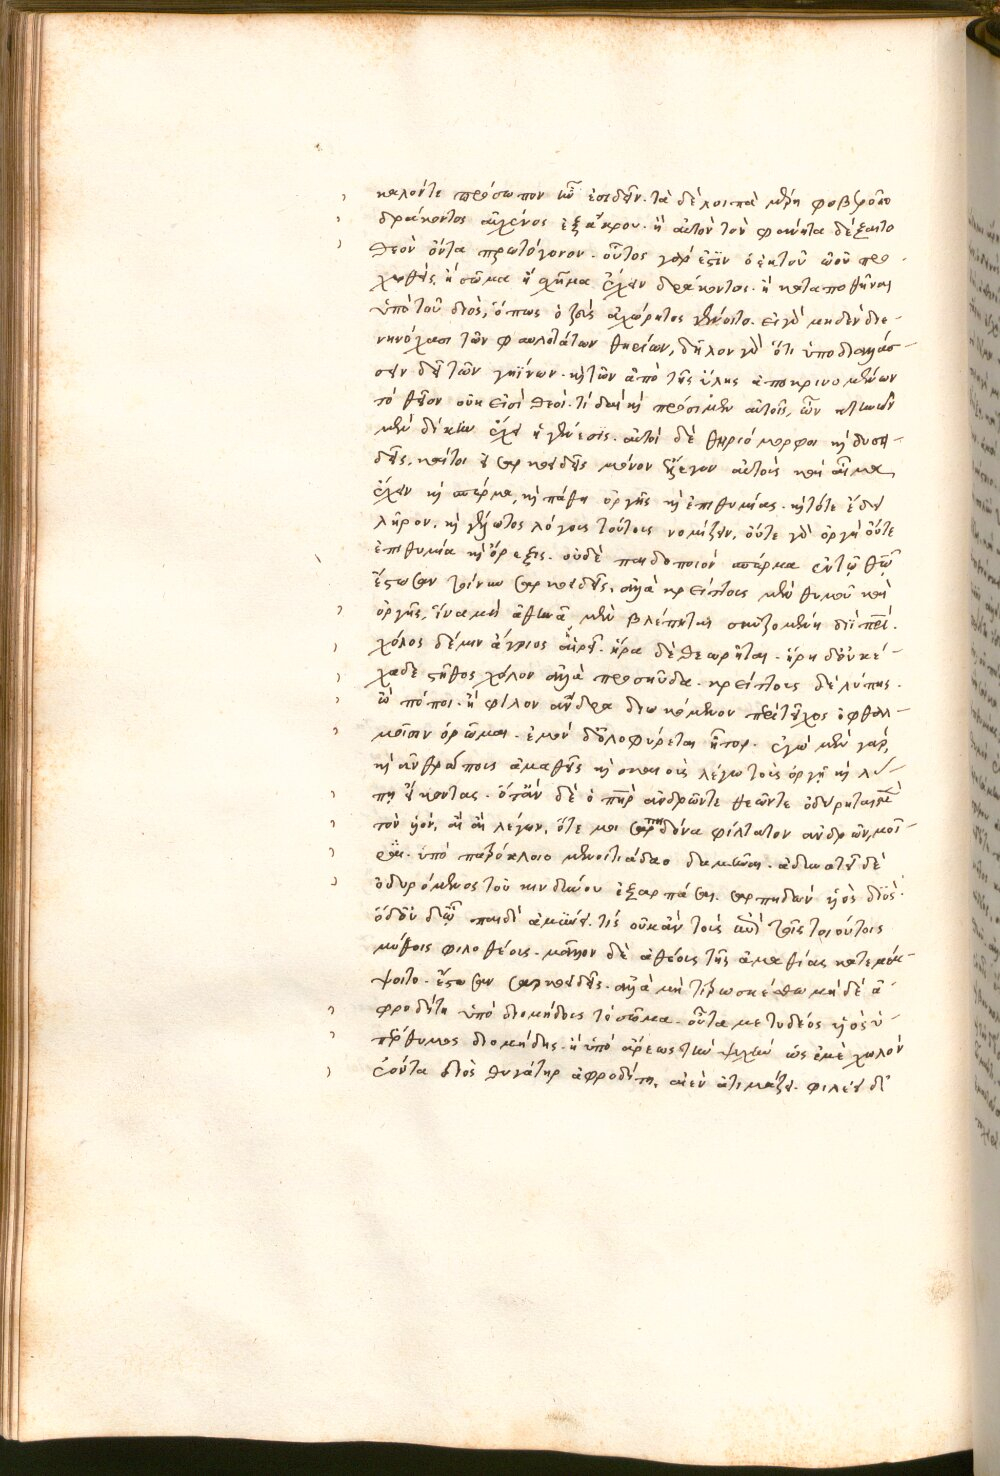 καλόντε πρόσωπον ἦν ἐσιδεῖν. τὰ δὲ λοιπὰ μέρη φοβεροῖο
δράκοντος αὐχένος ἐξ ἄκρου. ἢ αὐτὸν τὸν φανῆτα δέξαιτο
θεὸν ὄντα πρωτόγονον. οὗτος γάρ ἐστιν ὁ ἐκ τοῦ ὠοῦ προ-
χυθείς, ἢ σῶμα ἢ σχῆμα ἔχειν δράκοντος. ἢ καταποθῆναι
ὑπὸ τοῦ διός, ὅπως ὁ ζεὺς ἀχώρητος γένοιτο. εἰ γὰρ μηδὲν διε-
νηνόχασι τῶν φαυλοτάτων θηρίων, δῆλον γὰρ ὅτι ὑποδιαλάσ-
σειν δεῖ τῶν γηΐνων. καὶ τῶν ἀπὸ τῆς ὕλης ἀποκρινομένων
τὸ θεῖον οὐκ εἰσὶ θεοί. τί δαὶ καὶ πρόσιμεν αὐτοῖς, ὧν κτηνῶν
μὲν δίκην ἔχει ἡ γένεσις. αὐτοὶ δὲ θηριόμορφοι καὶ δυσει-
δεῖς, καίτοι εἰ σαρκοειδεῖς μόνον ἔλεγον αὐτοὺς καὶ αἷμα
ἔχειν καὶ σπέρμα, καὶ πάθη ὀργῆς καὶ ἐπιθυμίας. καὶ τότε ἔδει
λῆρον, καὶ γέλωτος λόγους τούτους νομίζειν, οὔτε γὰρ ὀργὴ οὔτε
ἐπιθυμία καὶ ὄρεξις. οὐδὲ παιδοποιὸν σπέρμα ἐν τῷ θεῷ
ἔστωσαν τοίνυν σαρκοειδεῖς, ἀλλὰ κρείττους μὲν θυμοῦ καὶ
ὀργῆς, ἵνα μὴ ἀθηνᾶ μὲν βλέπηται σκυζομένη διῒ πατρί.
χόλος δέ μιν ἄγριος αἵρει. ἥρα δὲ θεωρῆται. ἥρη δ' οὐκ ἔ-
χαδε στῆθος χόλον ἀλλὰ προσηύδα. κρείττους δὲ λύπης.
ὢ πόποι. ἦ φίλον ἄνδρα διωκόμενον περὶ τεῖχος ὀφθαλ-
μοῖσιν ὁρῶμαι. ἐμὸν δ' ὀλοφύρεται ἦτορ. ἐγὼ μὲν γὰρ,
καὶ ἀνθρώπους ἀμαθεῖς καὶ σκαιοὺς λέγω τοὺς ὀργῇ καὶ λύ-
πῃ εἴκοντας. ὅταν δὲ ὁ πατὴρ ἀνδρῶντε θεῶντε ὀδύρηται μὲν
τὸν υἱόν, αἲ αἲ λέγων, ὅτε μοι σαρπηδόνα φίλτατον ἀνδρῶν, μοῖ-
ρα. ὑπὸ πατρόκλοιο μενοιτιάδαο δαμῆναι. ἀδυνατεῖ δὲ
ὀδυρόμενος τοῦ κινδύνου ἐξαρπάσαι. σαρπηδὼν υἱὸς διός.
ὁ δ' οὐδ' ᾧ παιδὶ ἀμύνει. τίς οὐκ ἂν τοὺς ἐπὶ τοῖς τοιούτοις
μύθοις φιλοθέους. μᾶλλον δὲ ἀθέους τῆς ἀμαθίας κατεμέμ-
ψοιτο. ἔστωσαν σαρκοειδεῖς. ἀλλὰ μὴ τιτρωσκέσθω μὴ δὲ ἀ-
φροδίτη ὑπὸ διομήδους τὸ σῶμα. οὖτα με τυδέος υἱὸς ὑ-
πέρθυμος διομήδης. ἢ ὑπὸ ἄρεως τὴν ψυχήν ὡς ἐμὲ χωλὸν
ἐόντα διὸς θυγάτηρ ἀφροδίτη, αἰὲν ἀτιμάζει. φιλέει δ'